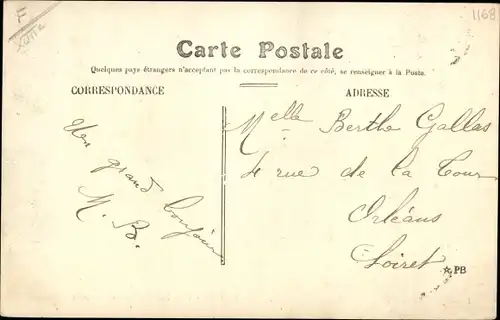 F
1168
Carte Postale
Quelques pays étrangers n'acceptant pas la correspondance de ce côté, se renseigner à la Poste.
CORRESPONDANCE
ADRESSE
Un grand bonjour
M. B.
Melle Berthe Gallas
4 rue de la Cour
Orléans
Loiret
☆ PB